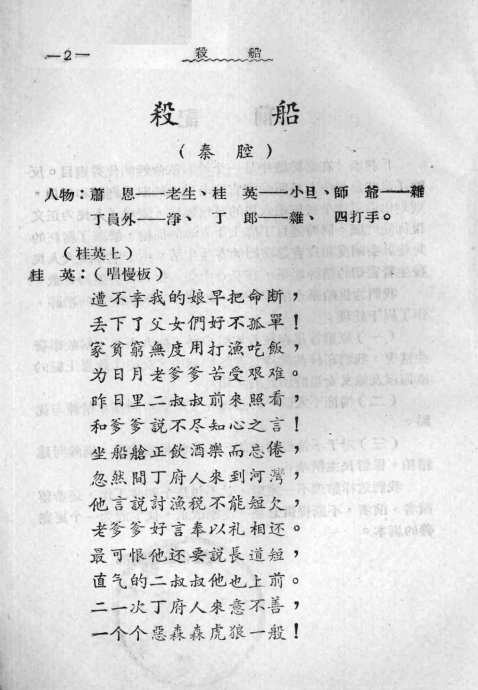 —2— 殺船
殺船
（秦腔）
人物：蕭恩——老生、桂英——小旦、師爺——雜
丁員外——淨、丁郎——雜、四打手。
（桂英上）
桂英：（唱慢板）
遭不幸我的娘早把命断，
丢下了父女們好不孤單！
家貧窮無度用打漁吃飯，
为日月老爹爹苦受艰难。
昨日里二叔叔前來照看，
和爹爹說不尽知心之言！
坐船艙正飲酒樂而忘倦，
忽然間丁府人來到河灣，
他言說討漁税不能短欠，
老爹爹好言奉以礼相还。
最可恨他还要說長道短，
直气的二叔叔他也上前。
二一次丁府人來意不善，
一个个惡森森虎狼一般！